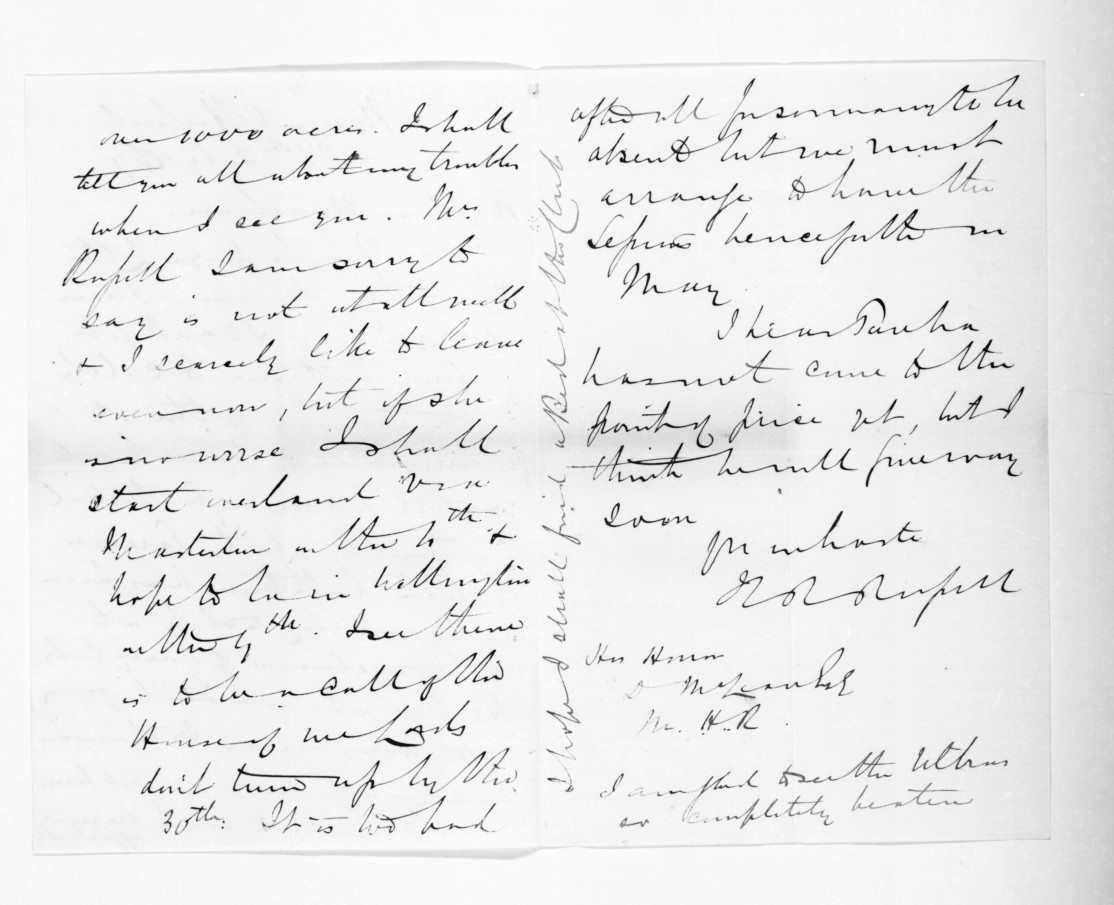 over 1000 acres. I shall
tell you all about my troubles
when I see you. Mrs
Russell I am sorry to
say is not at all well
& I scarcely like to leave
even now, but if she
is no worse I shall
start overland via
Masterton on the 6th &
hope to be in Wellington
on the 9th. I see there
is to be a call of the
House if we Lords
don't turn up by the
30th. It is too bad
after all for so many to be
absent but we must
arrange to have the
Session henceforth in
May.
I hear Pareha
has not come to the
point of price yet, but I
think he will give way
soon
Yrs in haste
H R Russell
His Honor
D McLean Esq
M. H. R.
I am glad to see the Ultras
so completely beaten
I hope I shall find a Bed at the Club